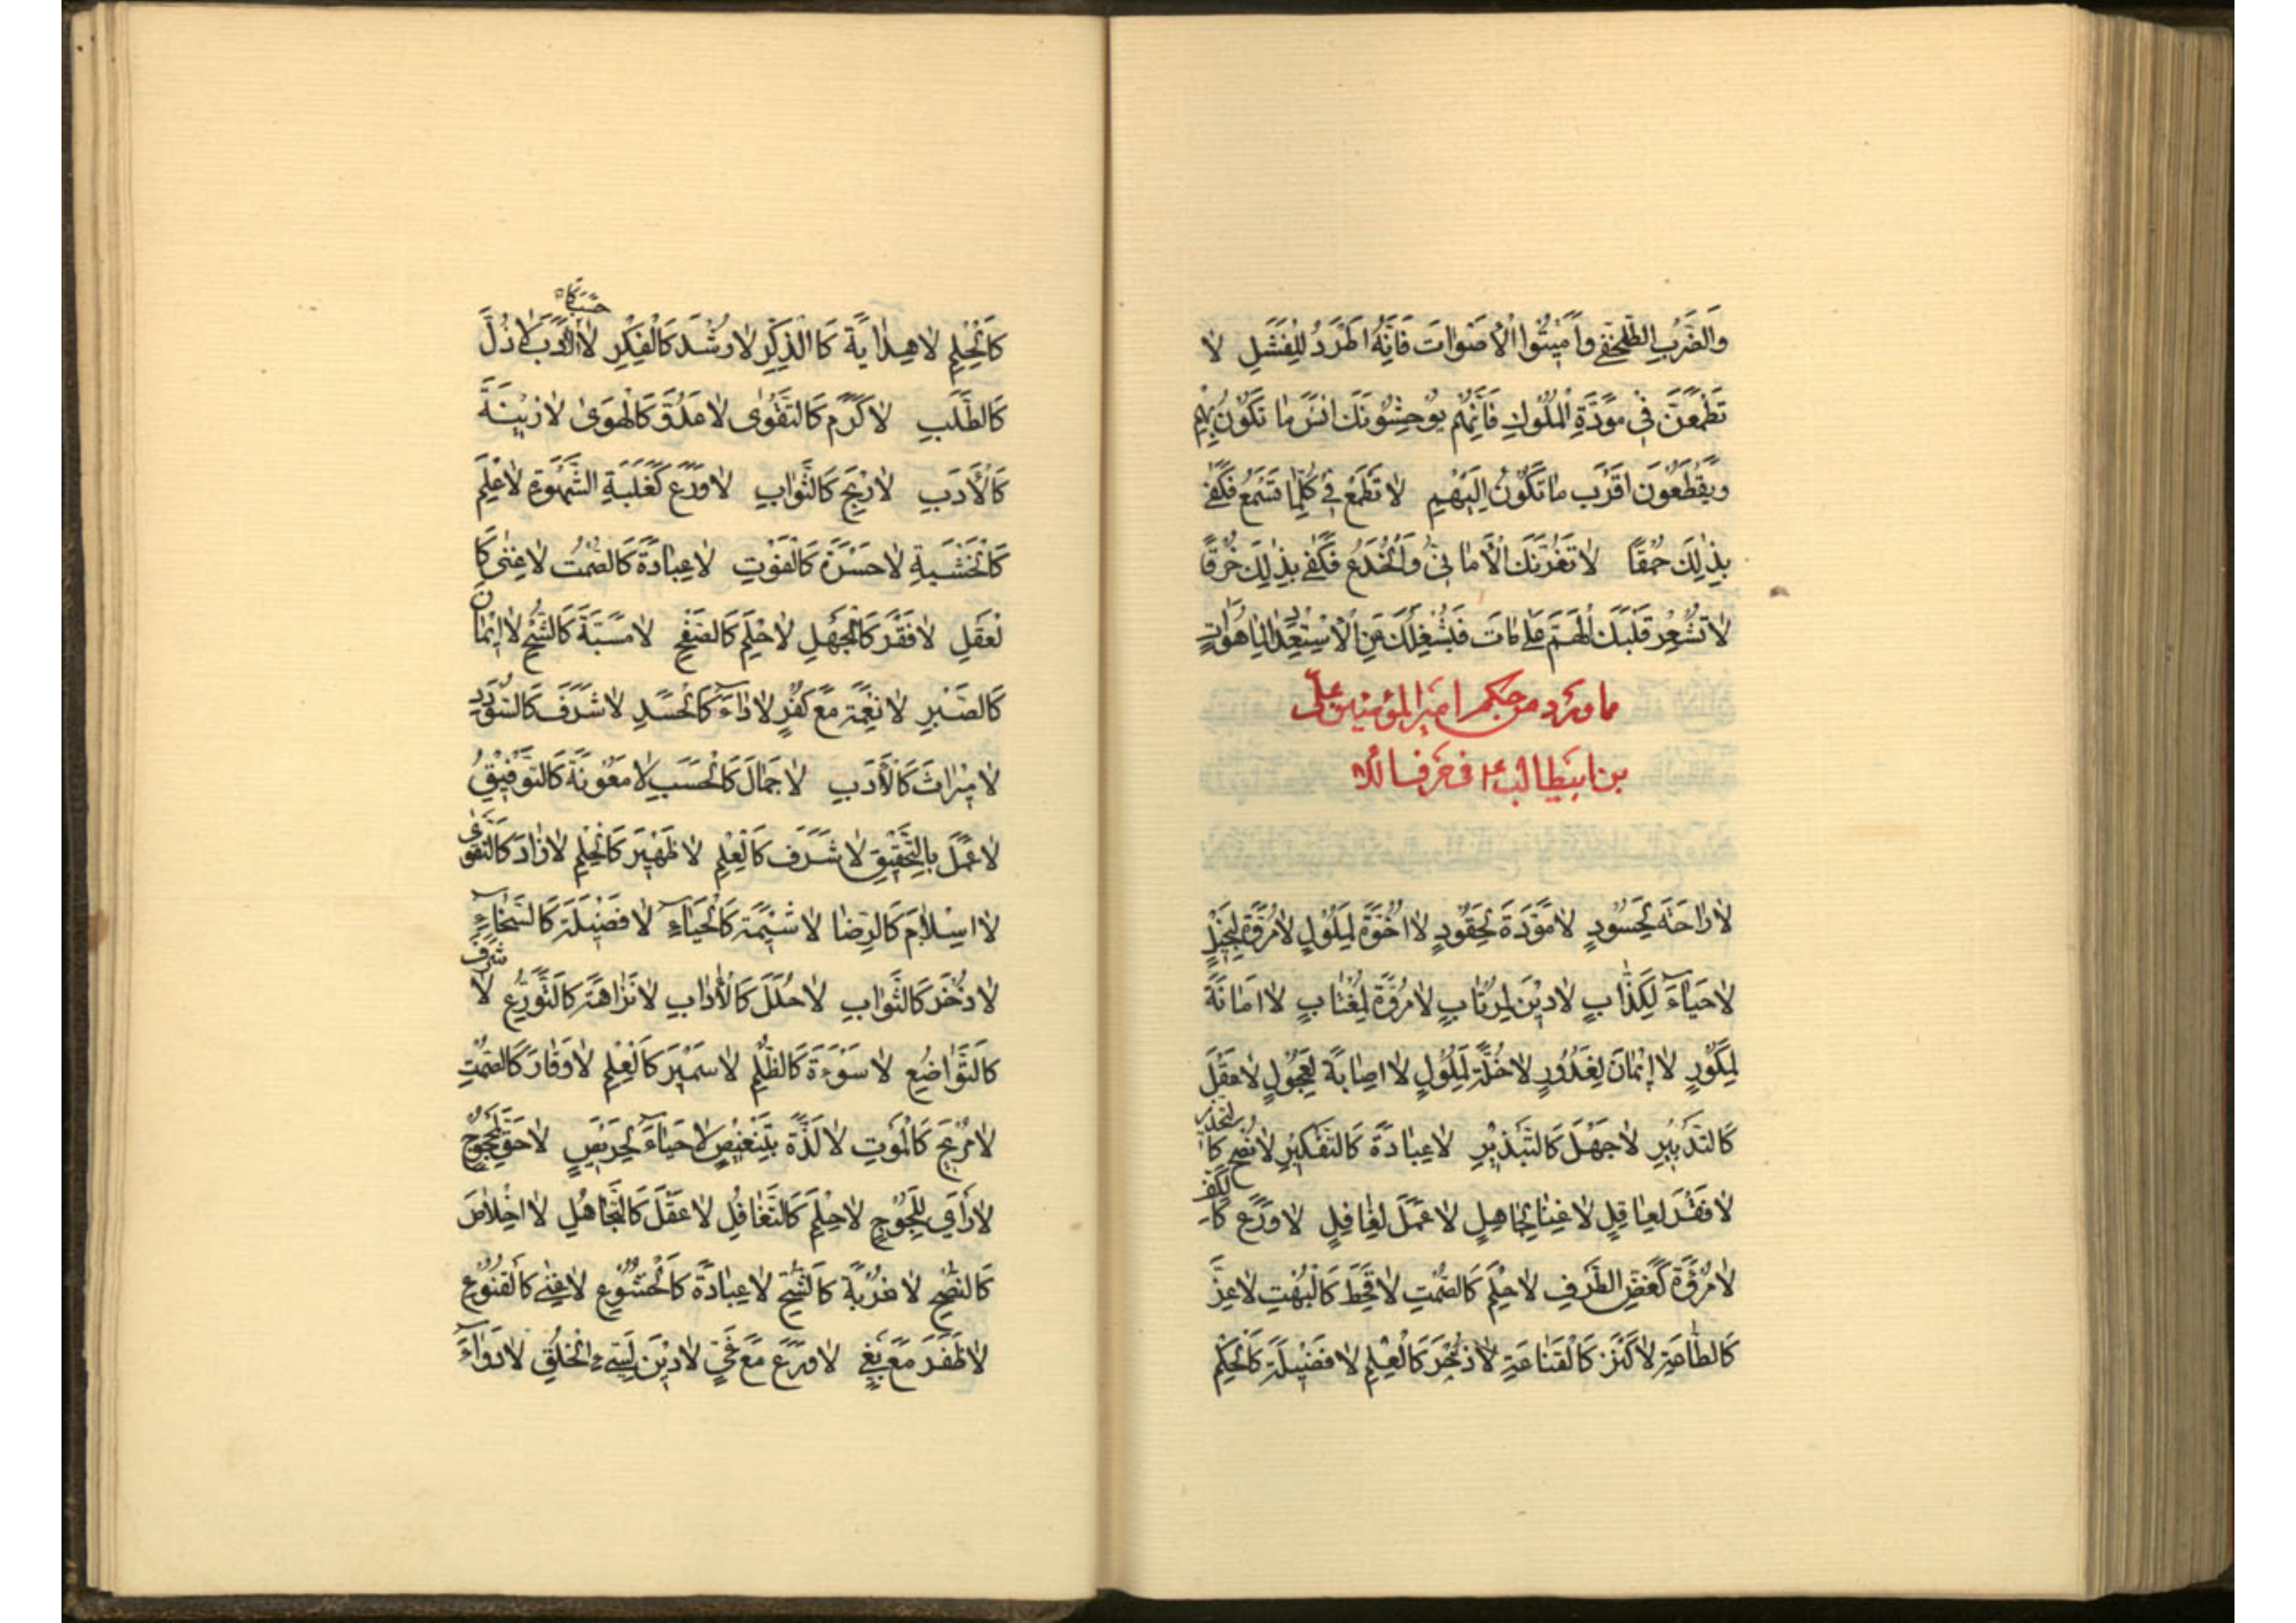 وَالضَّرْبِ الطِّلَحْفِ وَاَمِيتُوا الْاَصْوَاتَ فَاِنَّهُ اَطْرَدُ لِلْفَشَلِ لا
تَطْمَعَنَّ فِي مَوَدَّةِ الْمُلُوكِ فَاِنَّهُمْ يُوحِشُونَكَ انَسَ مَا تَكُونُ بِهِمْ
وَيَقْطَعُونَ اَقْرَبَ مَا تَكُونُ اِلَيْهِمْ لا تَطْمَعْ فِي كُلِّمَا تَسْمَعُ فَكَفٰى
بِذٰلِكَ حُمْقًا لا تَغُرَّنَّكَ الْاَمَانِيُّ وَالْخُدَعُ فَكَفٰى بِذٰلِكَ خُرْقًا
لا تُشْعِرْ قَلْبَكَ الْهَمَّ عَلٰى مَا فَاتَ فَيَشْغَلَكَ عَنِ الْاِسْتِعْدَادِ لِمَا هُوَ اتٍ
ما ورد من حكم امير المؤمنين علي
بن ابيطالب ع في حرف لا
لا رَاحَةَ لِحَسُودٍ لا مَوَدَّةَ لِحَقُودٍ لا اُخُوَّةَ لِمَلُولٍ لا مُرُوَّةَ لِبَخِيلٍ
لا حَيَاءَ لِكَذَّابٍ لا دِيْنَ لِمُرْتَابٍ لا مُرُوَّةَ لِمُغْتَابٍ لا اَمَانَةَ
لِمَكُورٍ لا اِيْمَانَ لِغَدُورٍ لا خُلَّةَ لِمَلُولٍ لا اِصَابَةَ لِعَجُولٍ لا عَقْلَ
كَالتَّدْبِيْرِ لا جَهْلَ كَالتَّبْذِيْرِ لا عِبَادَةَ كَالتَّفْكِيْرِ لا نُصْحَ كَالتَّحْذِيرِ
لا فَقْرَ لِعَاقِلٍ لا غِنَا لِجَاهِلٍ لا عَمَلَ لِغَافِلٍ لا وَرَعَ كَالْكَفِّ
لا مُرُوَّةَ كَغَضِّ الطَّرْفِ لا حِلْمَ كَالصَّمْتِ لا قَحْطَ كَالْبُهْتِ لا عِزَّ
كَالطَّاعَةِ لا كَنْزَ كَالْقَنَاعَةِ لا ذُخْرَ كَالْعِلْمِ لا فَضِيْلَةَ كَالْحِلْمِ
كَالْحِلْمِ لا هِدَايَةَ كَالذِّكْرِ لا رُشْدَ كَالْفِكْرِ لا حَسَبَ كَالْاَدَبِ لا ذُلَّ
كَالطَّلَبِ لا كَرَمَ كَالتَّقْوٰى لا عَدُوَّ كَالْهَوٰى لا زِيْنَةَ
كَالْاَدَبِ لا رِبْحَ كَالثَّوَابِ لا وَرَعَ كَغَلَبَةِ الشَّهْوَةِ لا عِلْمَ
كَالْخَشْيَةِ لا حَسْرَةَ كَالْفَوْتِ لا عِبَادَةَ كَالصَّمْتِ لا غِنٰى كَا
لْعَقْلِ لا فَقْرَ كَالْجَهْلِ لا حِلْمَ كَالصَّفْحِ لا مَسَبَّةَ كَالشُّحِّ لا اِيْمَانَ
كَالصَّبْرِ لا نِعْمَةَ مَعَ كُفْرٍ لا دَاءَ كَالْحَسَدِ لا شَرَفَ كَالسُّؤْدَدِ
لا مِيْرَاثَ كَالْاَدَبِ لا جَمَالَ كَالْحَسَبِ لا مَعُونَةَ كَالتَّوْفِيْقِ
لا عَمَلَ بِالتَّحْقِيْقِ لا شَرَفَ كَالْعِلْمِ لا ظَهِيْرَ كَالْحِلْمِ لا زَادَ كَالتَّقْوٰى
لا اِسْلَامَ كَالرِّضَا لا شِيْمَةَ كَالْحَيَاءِ لا فَضِيْلَةَ كَالسَّخَاءِ
لا ذُخْرَ كَالثَّوَابِ لا حُلَلَ كَالْاٰدَابِ لا نَزَاهَةَ كَالتَّوَرُّعِ لا شَرَفَ
كَالتَّوَاضُعِ لا سَوْءَةَ كَالظُّلْمِ لا سَمِيْرَ كَالْعِلْمِ لا وَقَارَ كَالصَّمْتِ
لا مُرِيْحَ كَالْمَوْتِ لا لَذَّةَ بِتَنْغِيْصٍ لا حَيَاءَ لِحَرِيْصٍ لا حَقَّ لِمَحْجُوجٍ
لا رَأْيَ لِلَجُوْجٍ لا حِلْمَ كَالتَّغَافُلِ لا عَقْلَ كَالتَّجَاهُلِ لا اِخْلَاصَ
كَالنُّصْحِ لا غُرْبَةَ كَالشُّحِّ لا عِبَادَةَ كَالْخُشُوْعِ لا غِنٰى كَالْقُنُوْعِ
لا ظَفَرَ مَعَ بَغْيٍ لا وَرَعَ مَعَ غَيٍّ لا دِيْنَ لِسَيِّءِ الْخُلُقِ لا دَوَاءَ